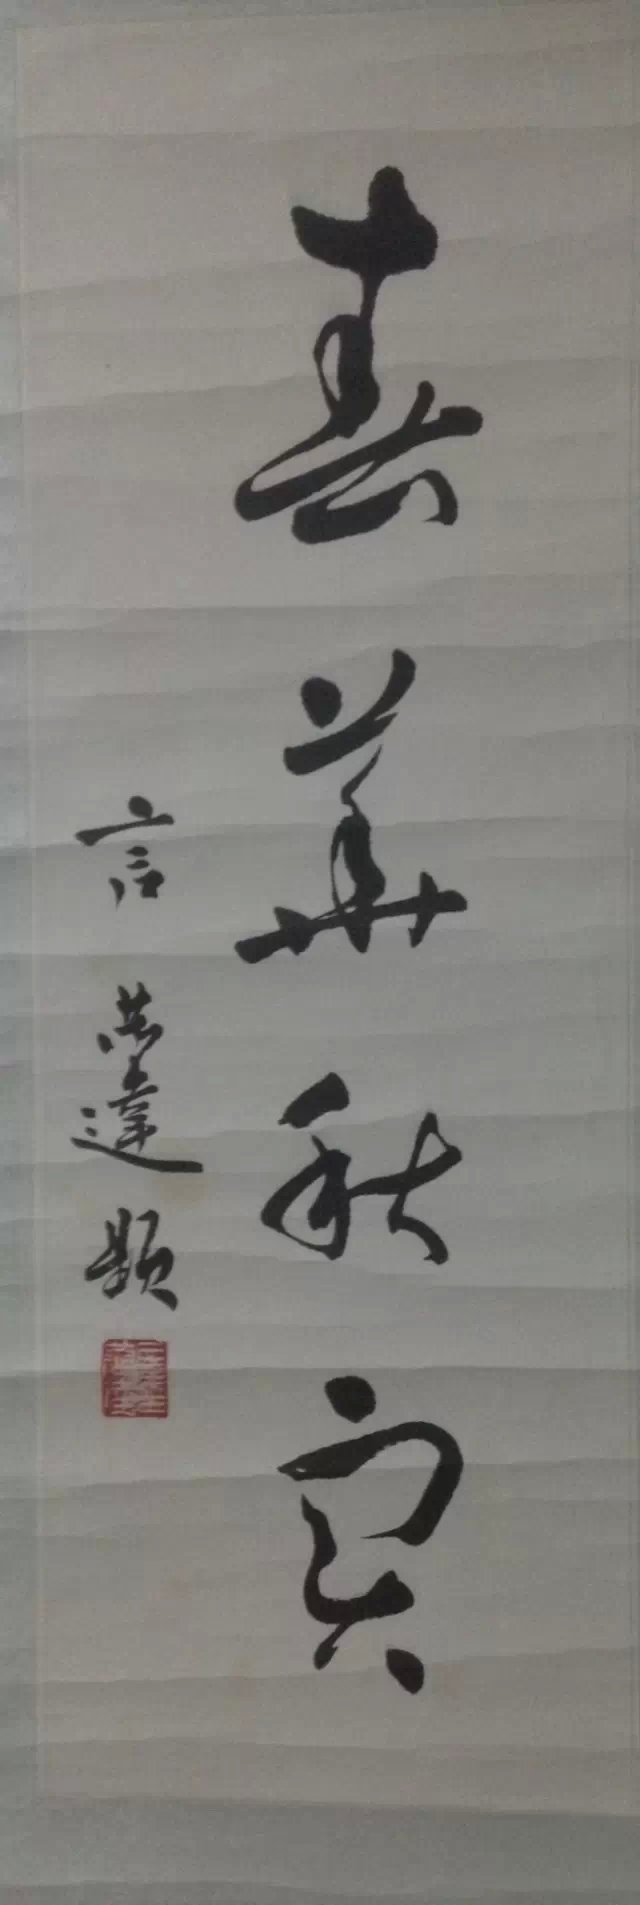 春華秋實
言恭達題